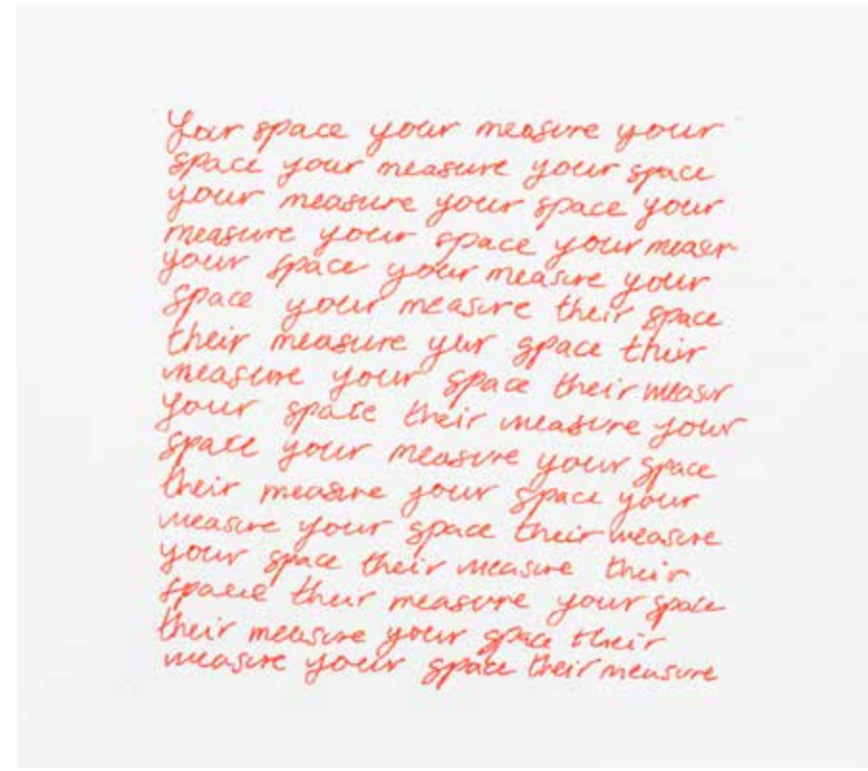 Your space your measure your
space your measure your space
your measure your space your
measure your space your measur
your space your measure your
space your measure their space
their measure yur space their
measure your space their measur
your space their measure your
space your measure your space
their measure your space your
measure your space their measure
your space their measure their
space their measure your space
their measure your space their
measure your space their measure